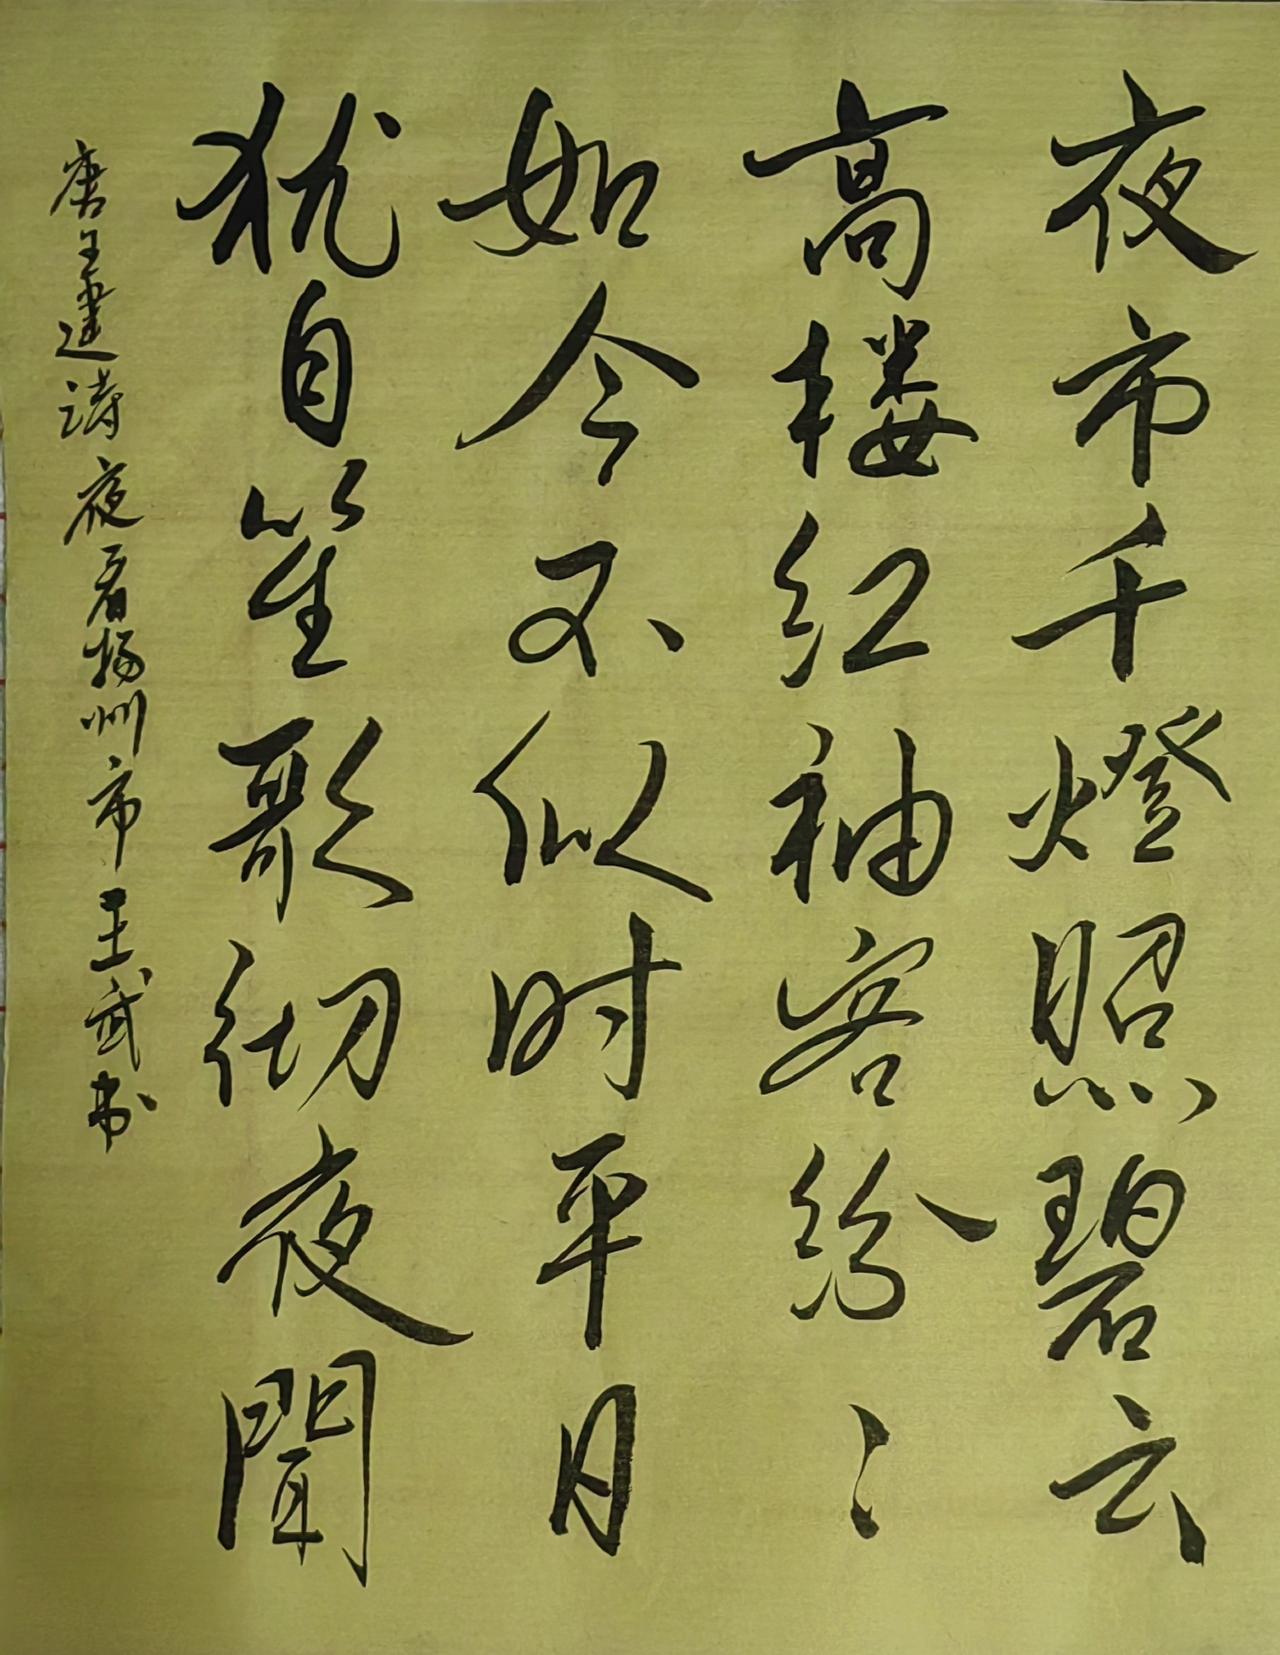 夜市千燈照碧云
高楼红袖客纷〻
如今不似时平日
犹自笙歌彻夜聞
唐王建诗夜看扬州市王武书